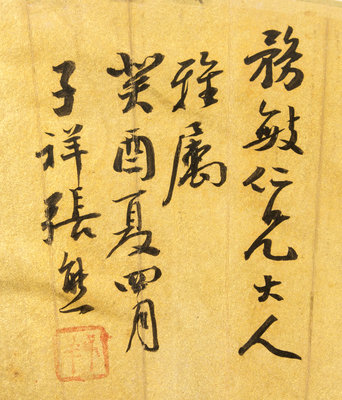 務敏仁兄大人
雅属
癸酉夏四月
子祥張熊